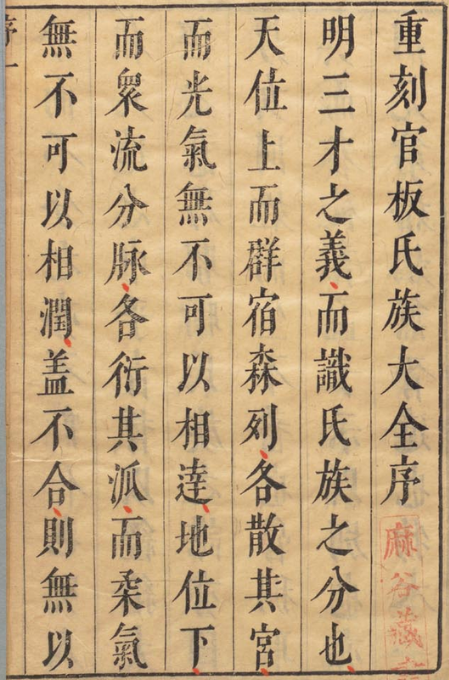 重刻官板氏族大全序
明三才之義而識氏族之分也
天位上而群宿森列各散其宮
而光氣無不可以相達地位下
而衆流分脉各衍其派而柔氣
無不可以相潤盖不合則無以
序一
麻谷藏